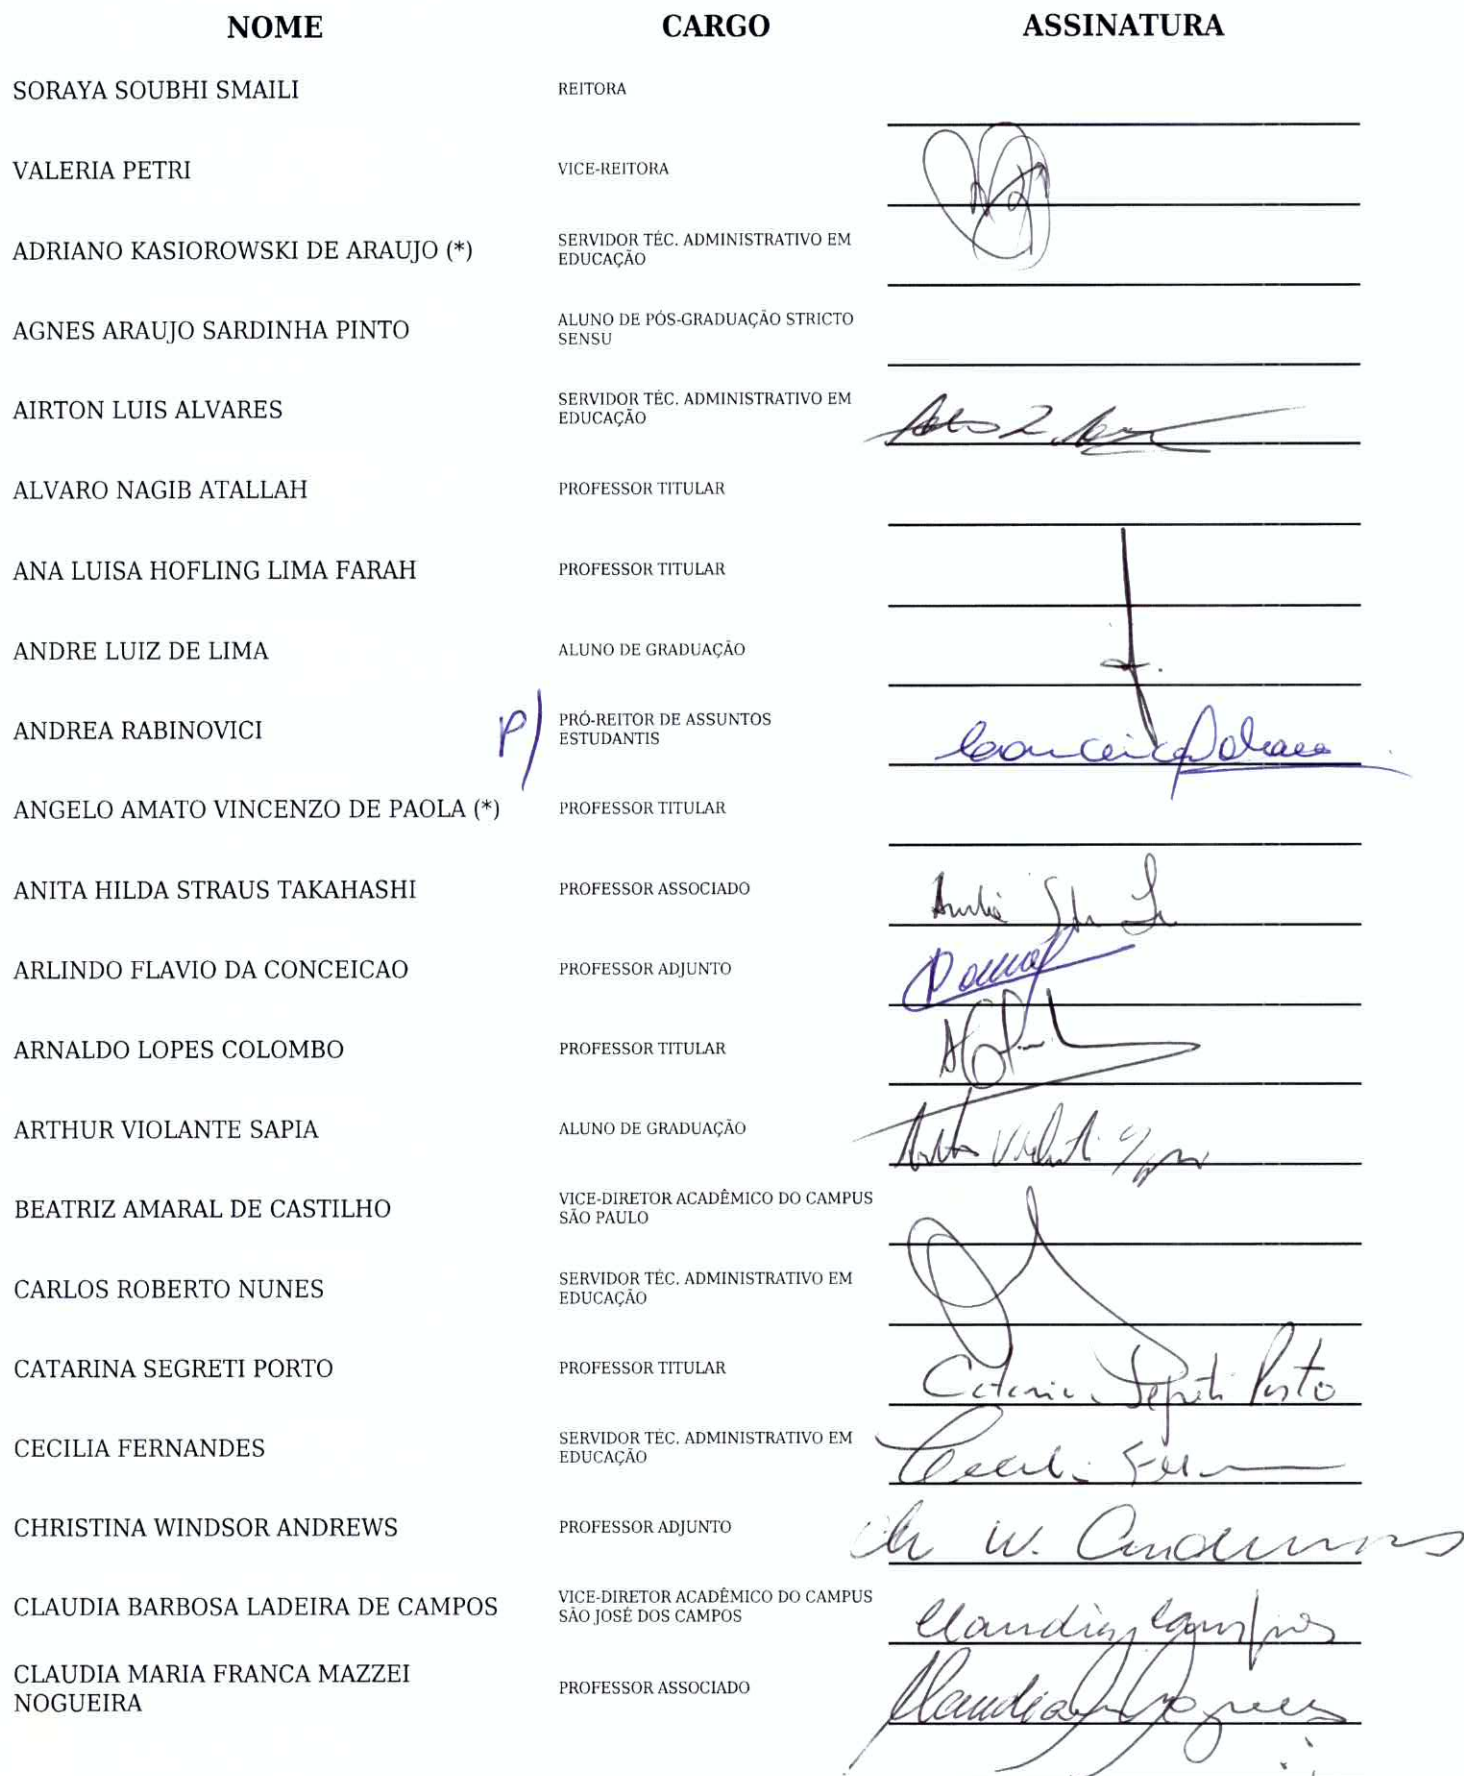 NOME CARGO ASSINATURA
SORAYA SOUBHI SMAILI REITORA
VALERIA PETRI VICE-REITORA
ADRIANO KASIOROWSKI DE ARAUJO (*) SERVIDOR TÉC. ADMINISTRATIVO EM
EDUCAÇÃO
AGNES ARAUJO SARDINHA PINTO ALUNO DE PÓS-GRADUAÇÃO STRICTO
SENSU
AIRTON LUIS ALVARES SERVIDOR TÉC. ADMINISTRATIVO EM
EDUCAÇÃO
ALVARO NAGIB ATALLAH PROFESSOR TITULAR
ANA LUISA HOFLING LIMA FARAH PROFESSOR TITULAR
ANDRE LUIZ DE LIMA ALUNO DE GRADUAÇÃO
ANDREA RABINOVICI P/ PRÓ-REITOR DE ASSUNTOS
ESTUDANTIS
ANGELO AMATO VINCENZO DE PAOLA (*) PROFESSOR TITULAR
ANITA HILDA STRAUS TAKAHASHI PROFESSOR ASSOCIADO
ARLINDO FLAVIO DA CONCEICAO PROFESSOR ADJUNTO
ARNALDO LOPES COLOMBO PROFESSOR TITULAR
ARTHUR VIOLANTE SAPIA ALUNO DE GRADUAÇÃO
BEATRIZ AMARAL DE CASTILHO VICE-DIRETOR ACADÊMICO DO CAMPUS
SÃO PAULO
CARLOS ROBERTO NUNES SERVIDOR TÉC. ADMINISTRATIVO EM
EDUCAÇÃO
CATARINA SEGRETI PORTO PROFESSOR TITULAR Catarina Segreti Porto
CECILIA FERNANDES SERVIDOR TÉC. ADMINISTRATIVO EM
EDUCAÇÃO
CHRISTINA WINDSOR ANDREWS PROFESSOR ADJUNTO Ch W. Andrews
CLAUDIA BARBOSA LADEIRA DE CAMPOS VICE-DIRETOR ACADÊMICO DO CAMPUS
SÃO JOSÉ DOS CAMPOS Claudia Campos
CLAUDIA MARIA FRANCA MAZZEI
NOGUEIRA PROFESSOR ASSOCIADO Claudia